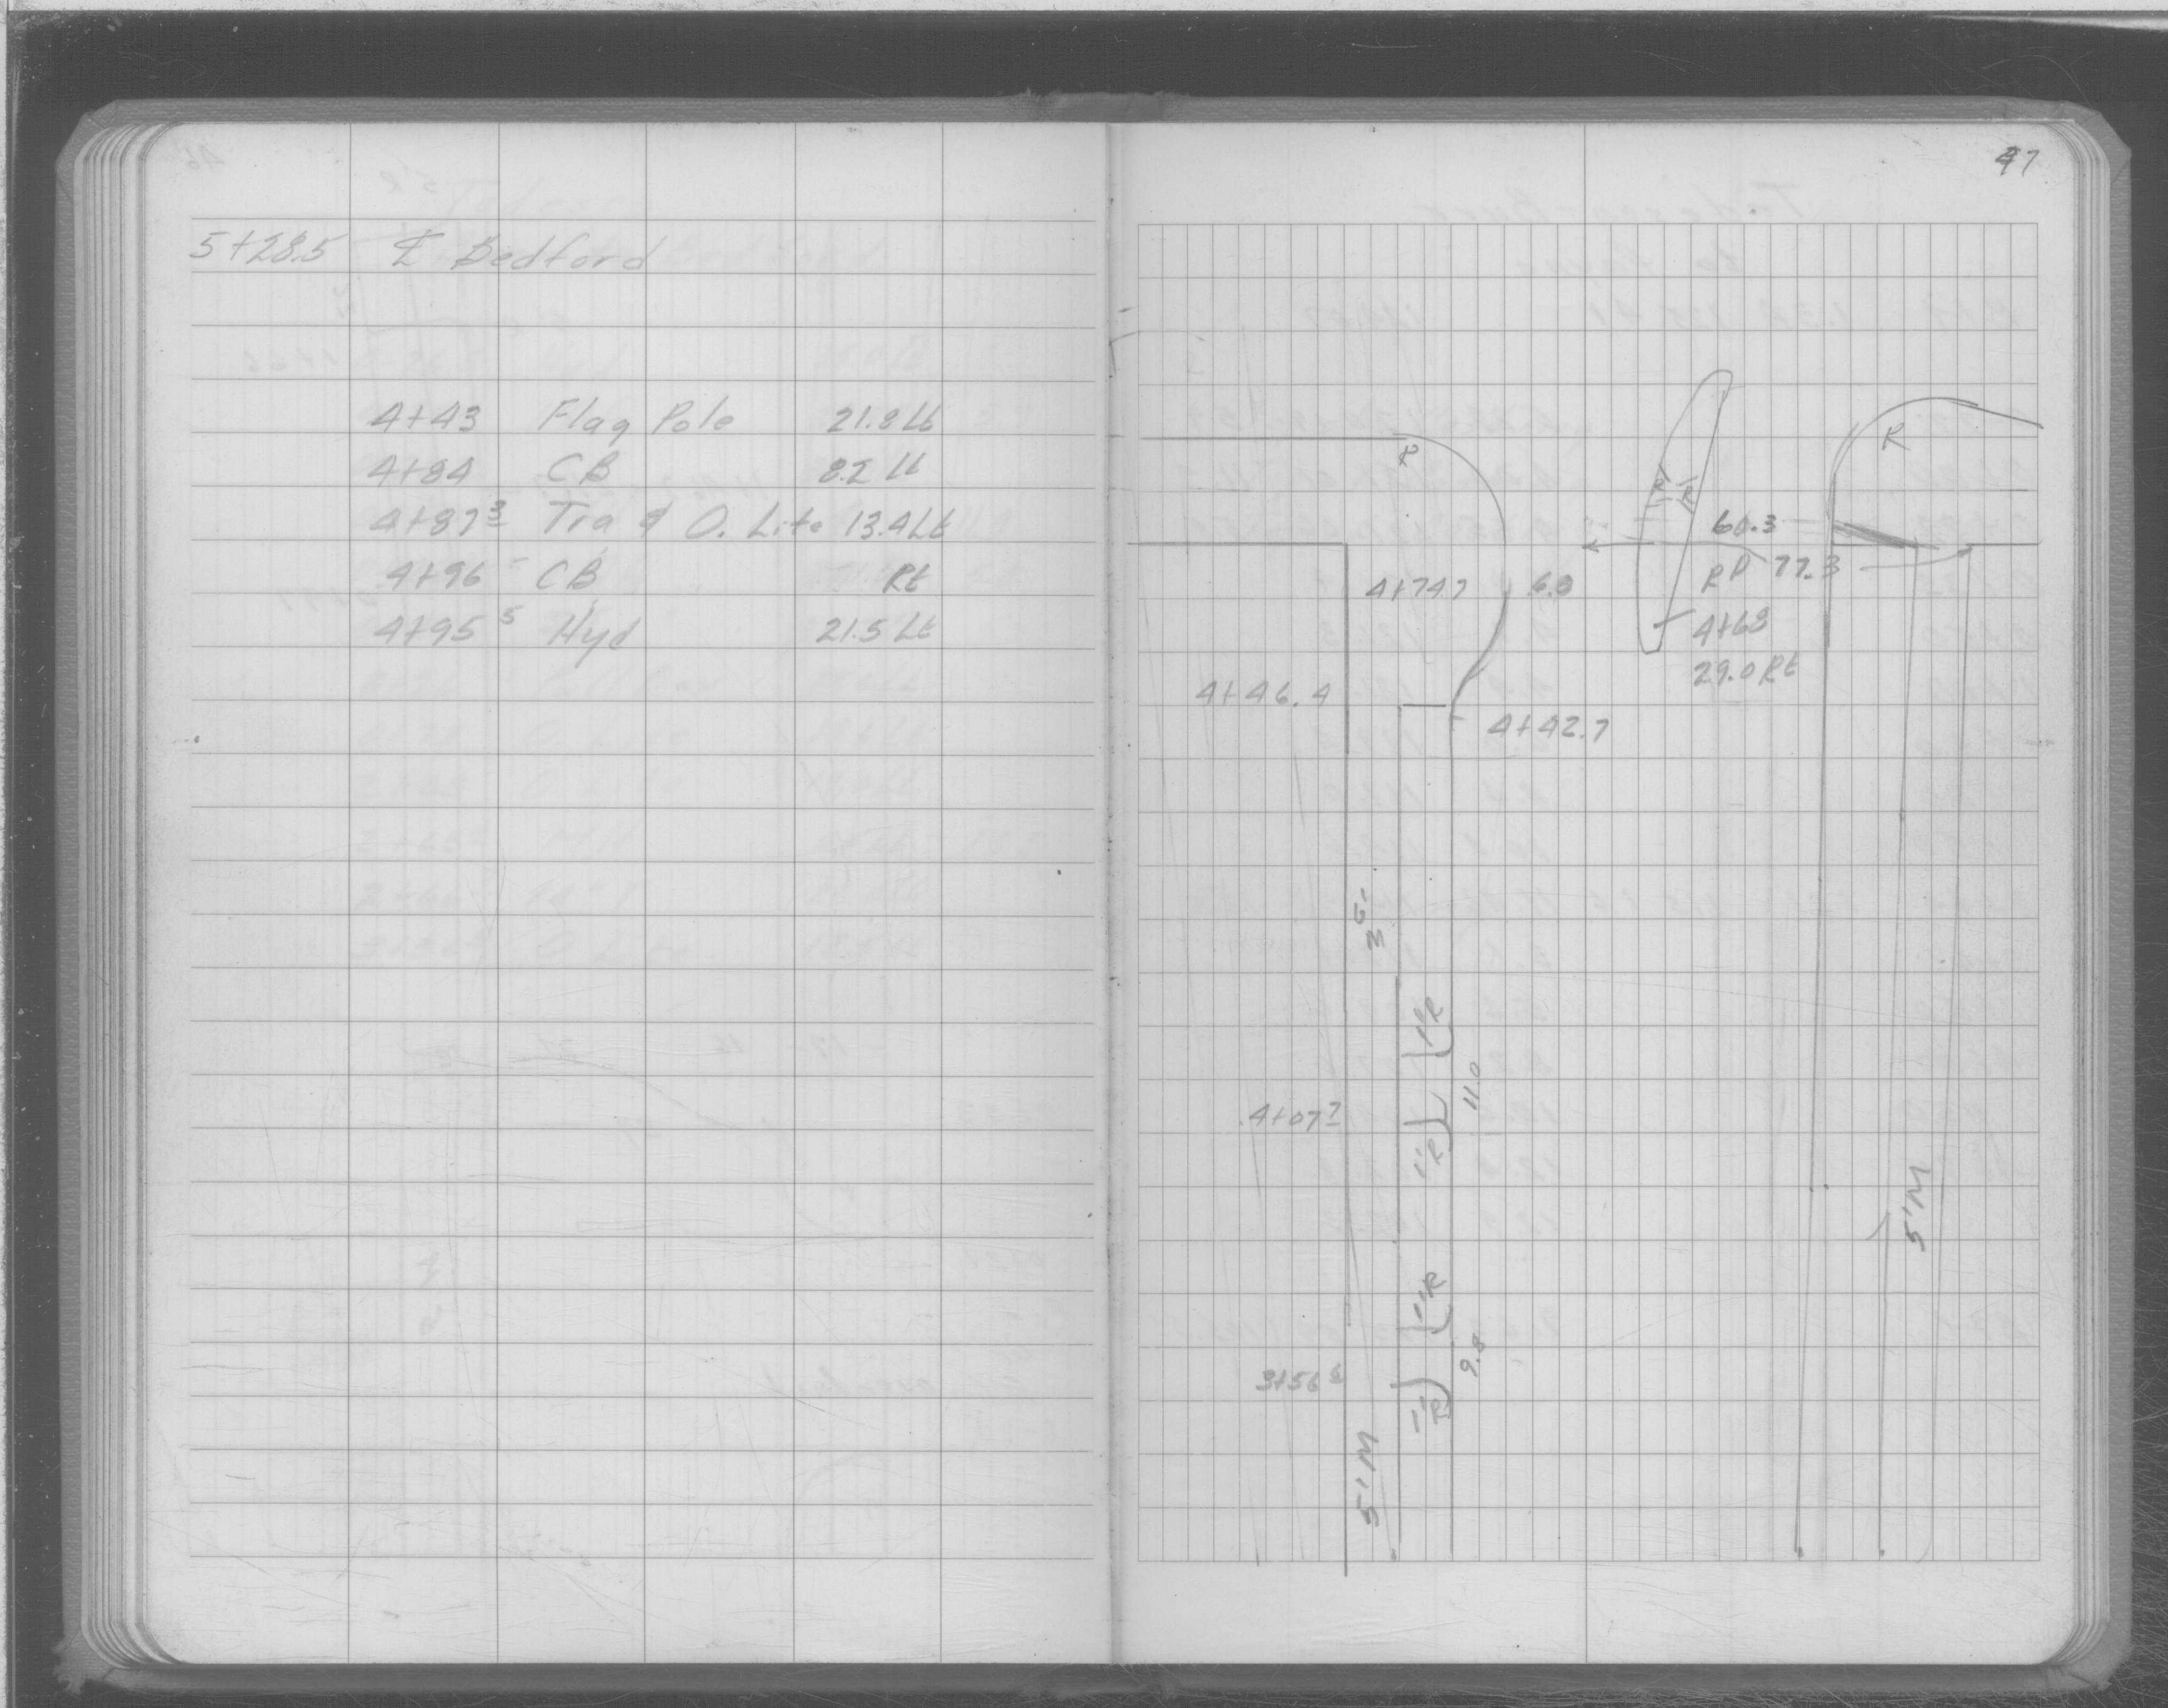 47
5+28.5 ℄ Bedford
4+43 Flag Pole 21.8 Lt
4+84 CB 8.2 Lt
4+87³ Tra & O. Lite 13.4 Lt
4+96 CB Rt
4+95⁵ Hyd 21.5 Lt
R
R
R
R
60.3
RP 77.3
4+74.7
6.8
4+68
29.0 Rt
4+46.4
4+42.7
1'R
11.0
4+07⁷
1'R
5'M
1'R
9.8
3+56⁸
1'R
5'M